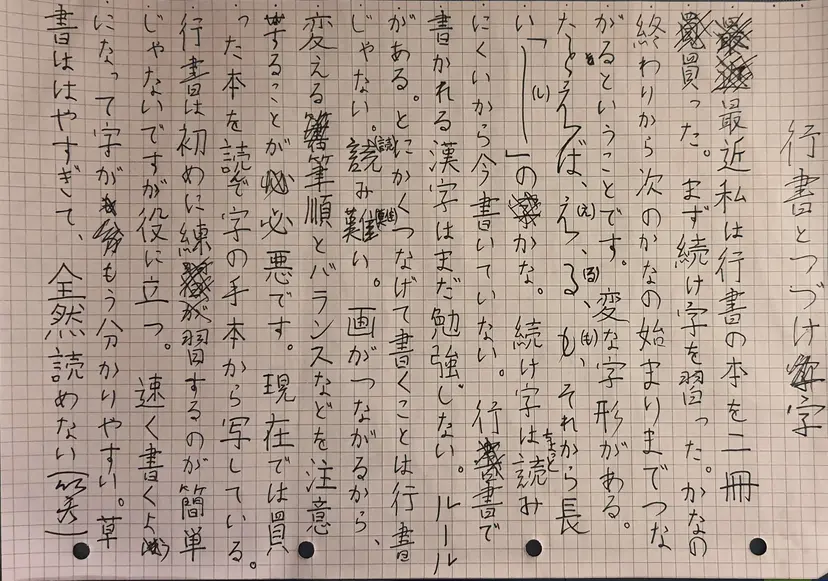 行書とつづけ字
最近私は行書の本を二冊
買った。まず続け字を習った。かなの
終わりから次のかなの始まりまでつな
がるということです。変な字形がある。
たとえば、え(え)、る(る)、も(も)、それから長
い「し(し)」のかな。続け字はちょっと読み
にくいから今書いていない。行書で
書かれる漢字はまだ勉強じない。ルール
がある。とにかくつなげて書くことは行書
じゃない。読(読)み難(難)い。画がつながるから、
変える筆順とバランスなどを注意
することが必悪です。現在では買
った本を読んで字の手本から写している。
行書は初めに練習するのが簡単
じゃないですが役に立つ。速く書くよ(よう)
になって字がもう分かりやすい。草
書ははやすぎて、全然読めない(笑)